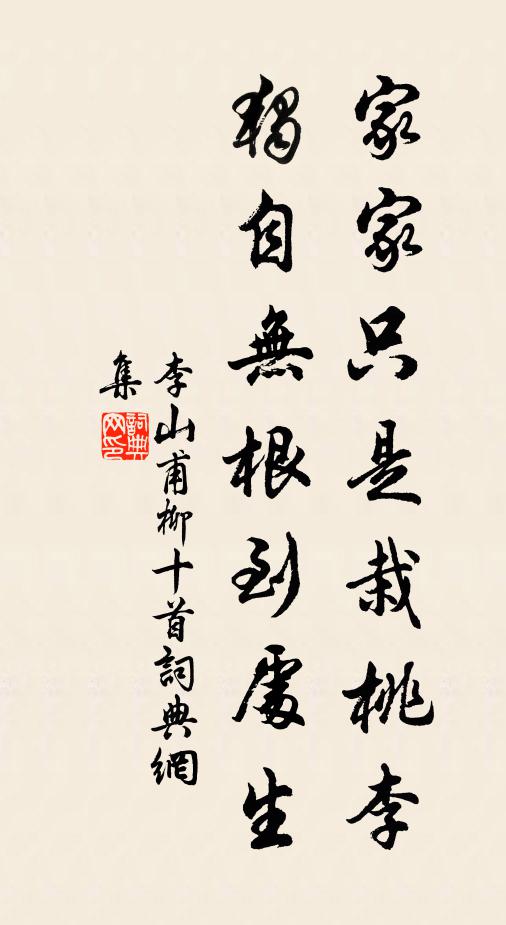 家家只是栽桃李
獨自無根到處生
李山甫柳十首詞典網
集
詞典
网印